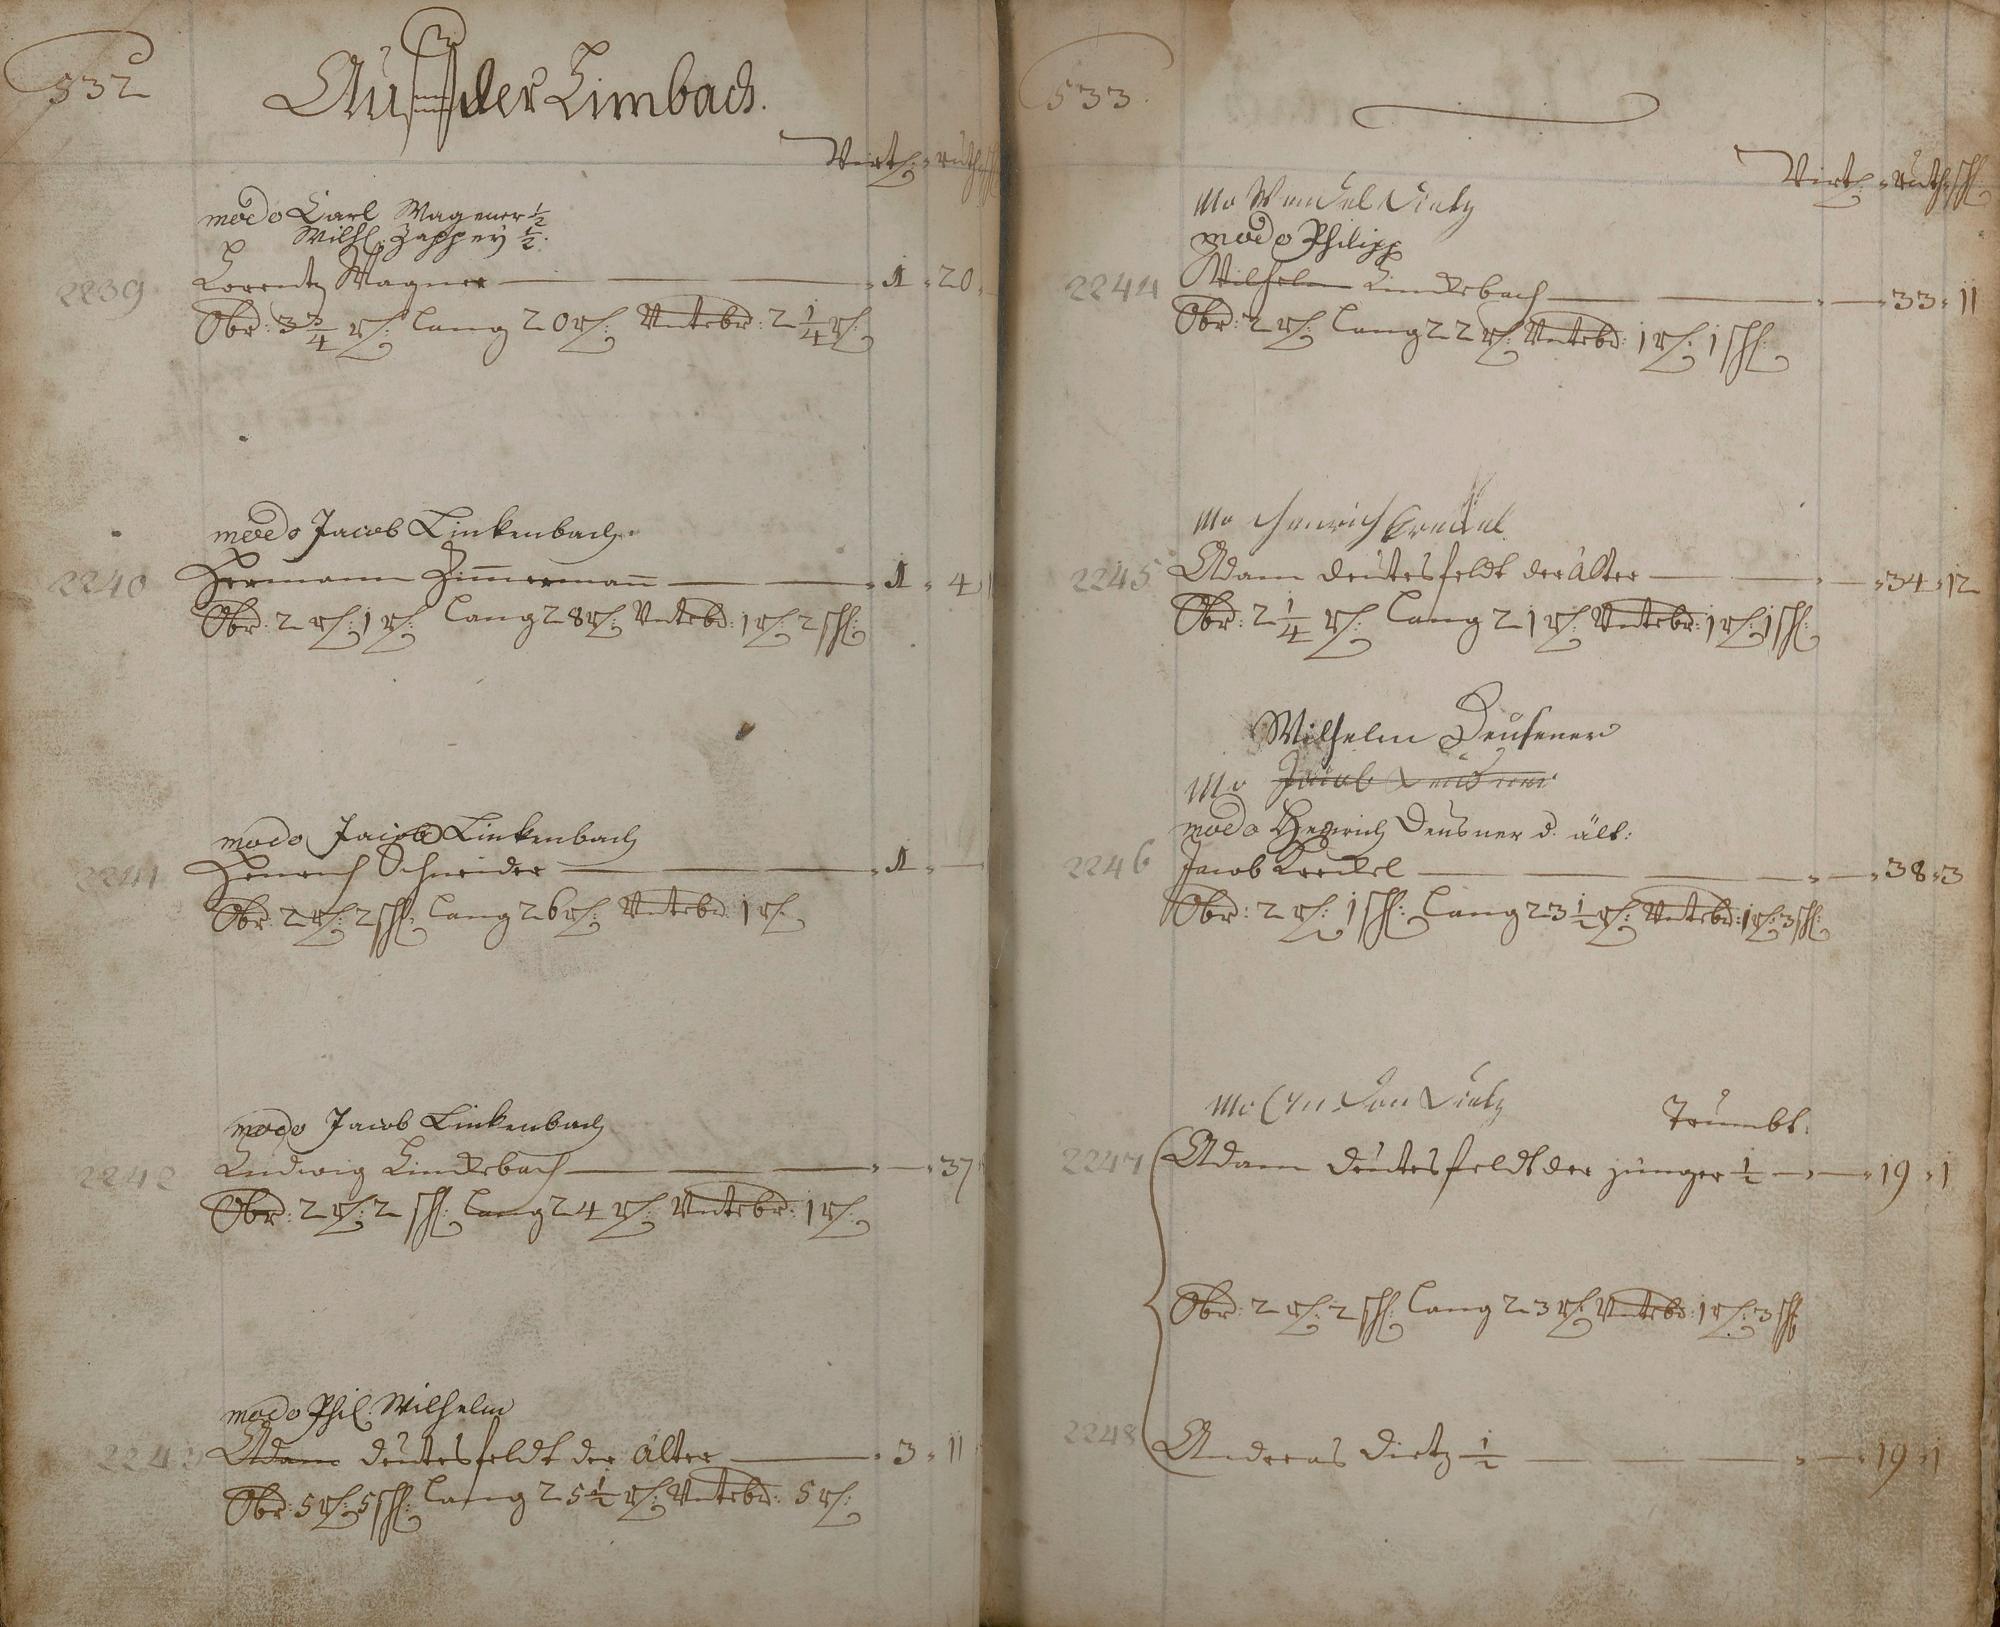 532
Auff der Limbach.
Virtl: ruth
modo Carl Wagener ½
Wilhl. Zappey ½.
2239 Lorentz Wagner 1 20
Obr: 3¾ r: lang 20 r: Untrbr: 2¼ r:
modo Jacob Linkenbach.
2240 Hermann Zimmermann 1 4
Obr: 2 r: 1 r: lang 28 r: Untrbr: 1 r: 2 sch:
modo Jacob Linkenbach
2241 Henrich Schneider 1
Obr: 2 r: 2 sch: lang 26 r: Untrbr: 1 r:
modo Jacob Linkenbach
2242 Ludwig Linckebach 37
Obr: 2 r: 2 sch: lang 24 r: Untrbr: 1 r:
modo Phil: Wilhelm
2243 Adam deutesfeldt der älter 3 11
Obr: 5 r: 5 sch: lang 25½ r: Untrbr: 5 r:
533.
Virtl: ruth sch:
Mo Wendel Dietz
modo Philipp
2244 Wilhelm Linckebach 33 11
Obr: 2 r: lang 22 r: Untrbr: 1 r: 1 sch:
Mo Henrich Creckel
2245 Adam deutesfeldt der älter 34 12
Obr: 2¼ r: lang 21 r: Untrbr: 1 r: 1 sch:
Wilhelm Deusener
Mo Jacob
modo Henrich Deusner d. ält:
2246 Jacob Kreckel 38 3
Obr: 2 r: 1 sch: lang 23½ r: Untrbr: 1 r: 3 sch:
Mo Dietz Trumbt.
2247 Adam deutesfeldt der jünger ½ 19 1
Obr: 2 r: 2 sch: lang 23 r: Untrbr: 1 r: 3 sch:
2248 Andreas Dietz ½ 19 1